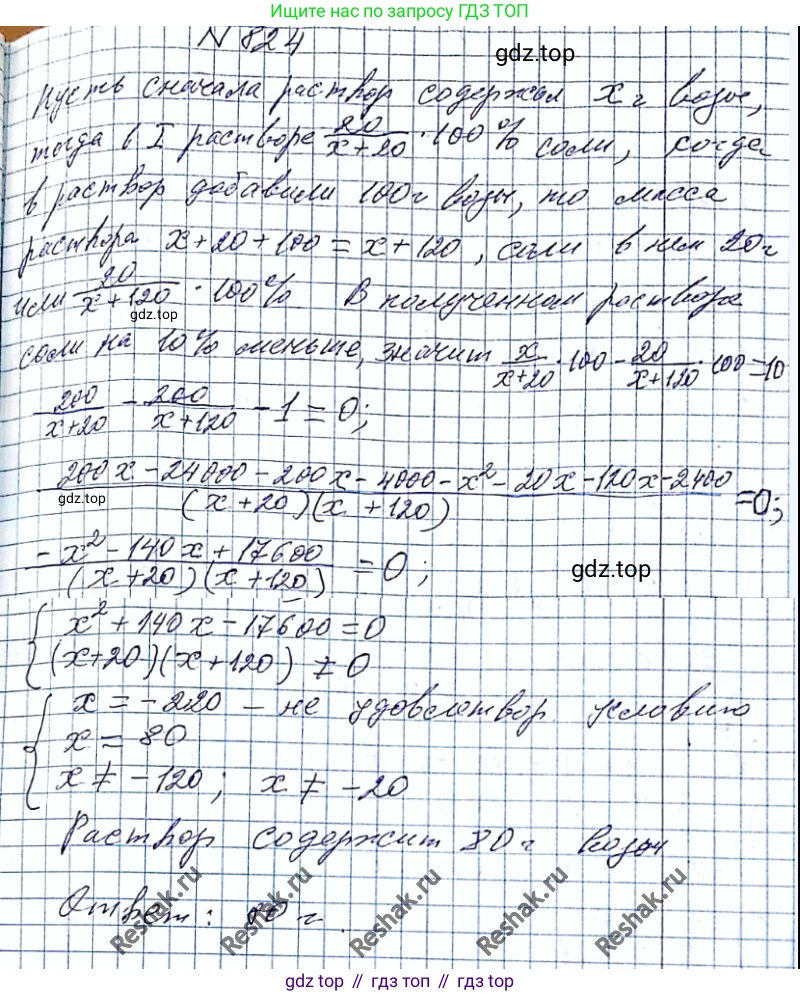 Ищите нас по запросу ГДЗ ТОП
N 824
gdz.top
Пусть сначала раствор содержал x г воды,
тогда в I растворе 20/(x+20) · 100% соли, когда
в раствор добавили 100г воды, то масса
раствора x+20+100=x+120, соли в нем 20г
или 20/(x+120) · 100% В полученном раствора
gdz.top
соли на 10% меньше, значит x/(x+20) · 100 - 20/(x+120) · 100=10
200/(x+20) - 200/(x+120) - 1 = 0;
(200x - 24000 - 200x - 4000 - x² - 20x - 120x - 2400)/((x+20)(x+120)) =0;
gdz.top
(-x² - 140x + 17600)/((x+20)(x+120)) = 0;
gdz.top
{ x² + 140x - 17600 = 0
(x+20)(x+120) ≠ 0
{ x = -220 - не удовлетвор условию
x = 80
x ≠ -120; x ≠ -20
Раствор содержит 80г воды
Ответ: 80 г.
Reshak.ru Reshak.ru Reshak.ru Reshak.ru Reshak.ru
gdz top // гдз топ // gdz top // гдз топ // gdz top